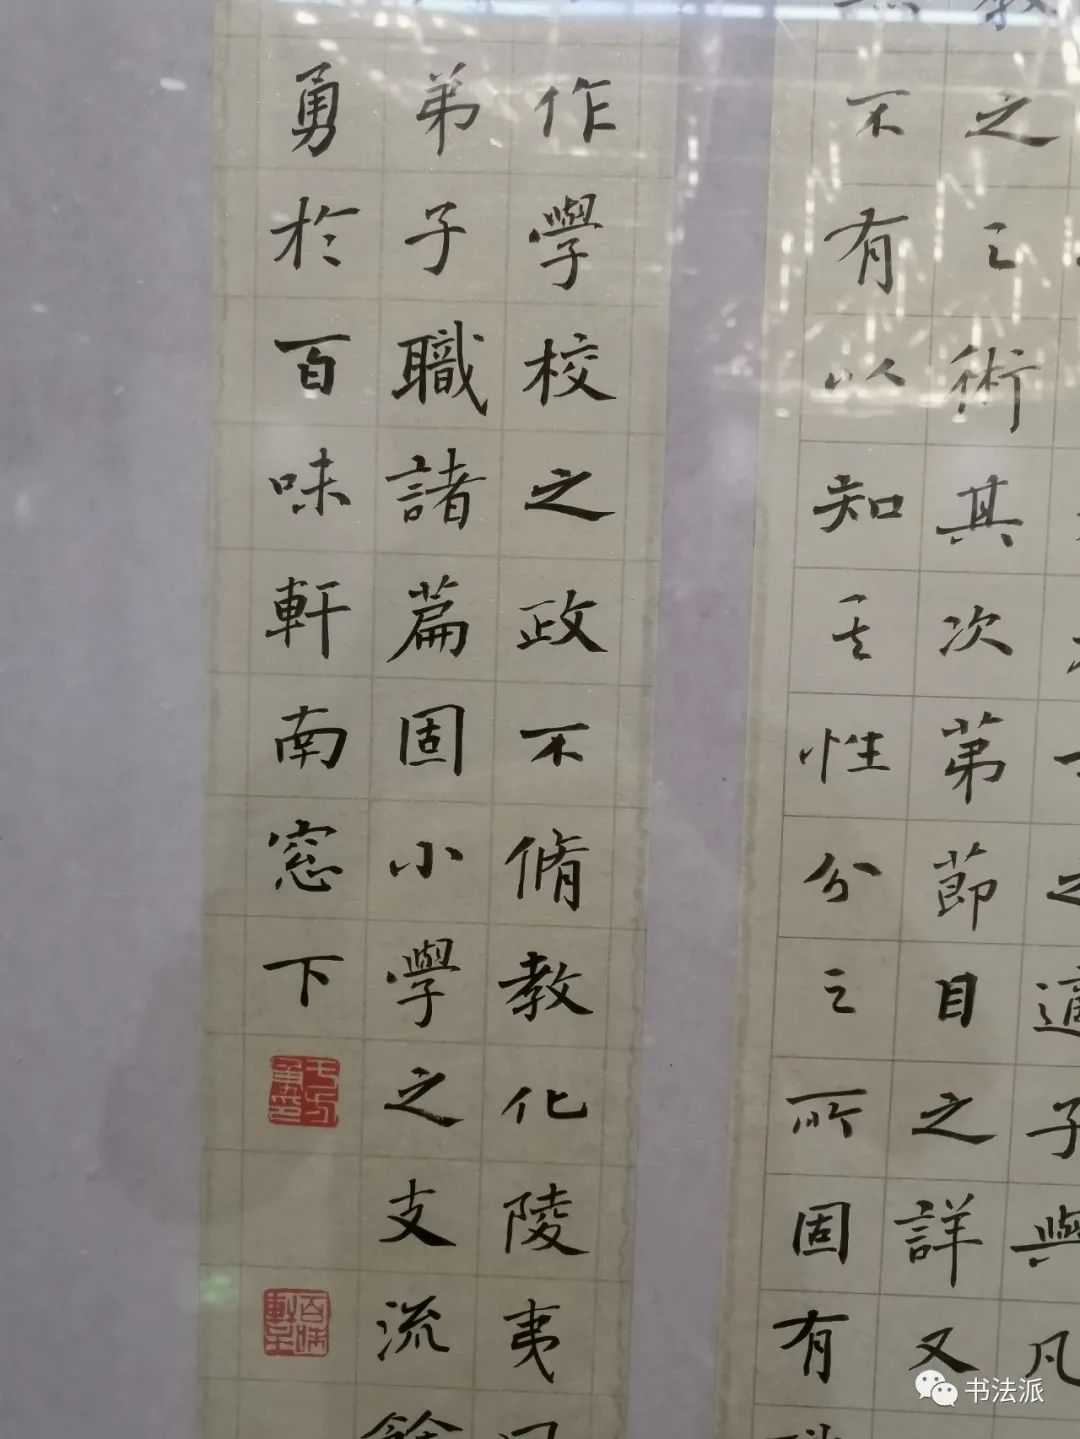 之適子與凡
教之之術其次第節目之詳又
無不有以知其性分之所固有
作學校之政不脩教化陵夷
弟子職諸篇固小學之支流餘
勇於百味軒南窓下
百味軒主
书法派